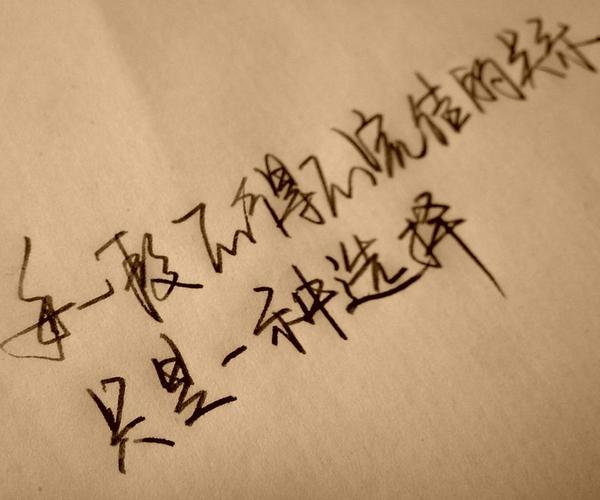 每一段不得不凉信的关系
只是一种选择